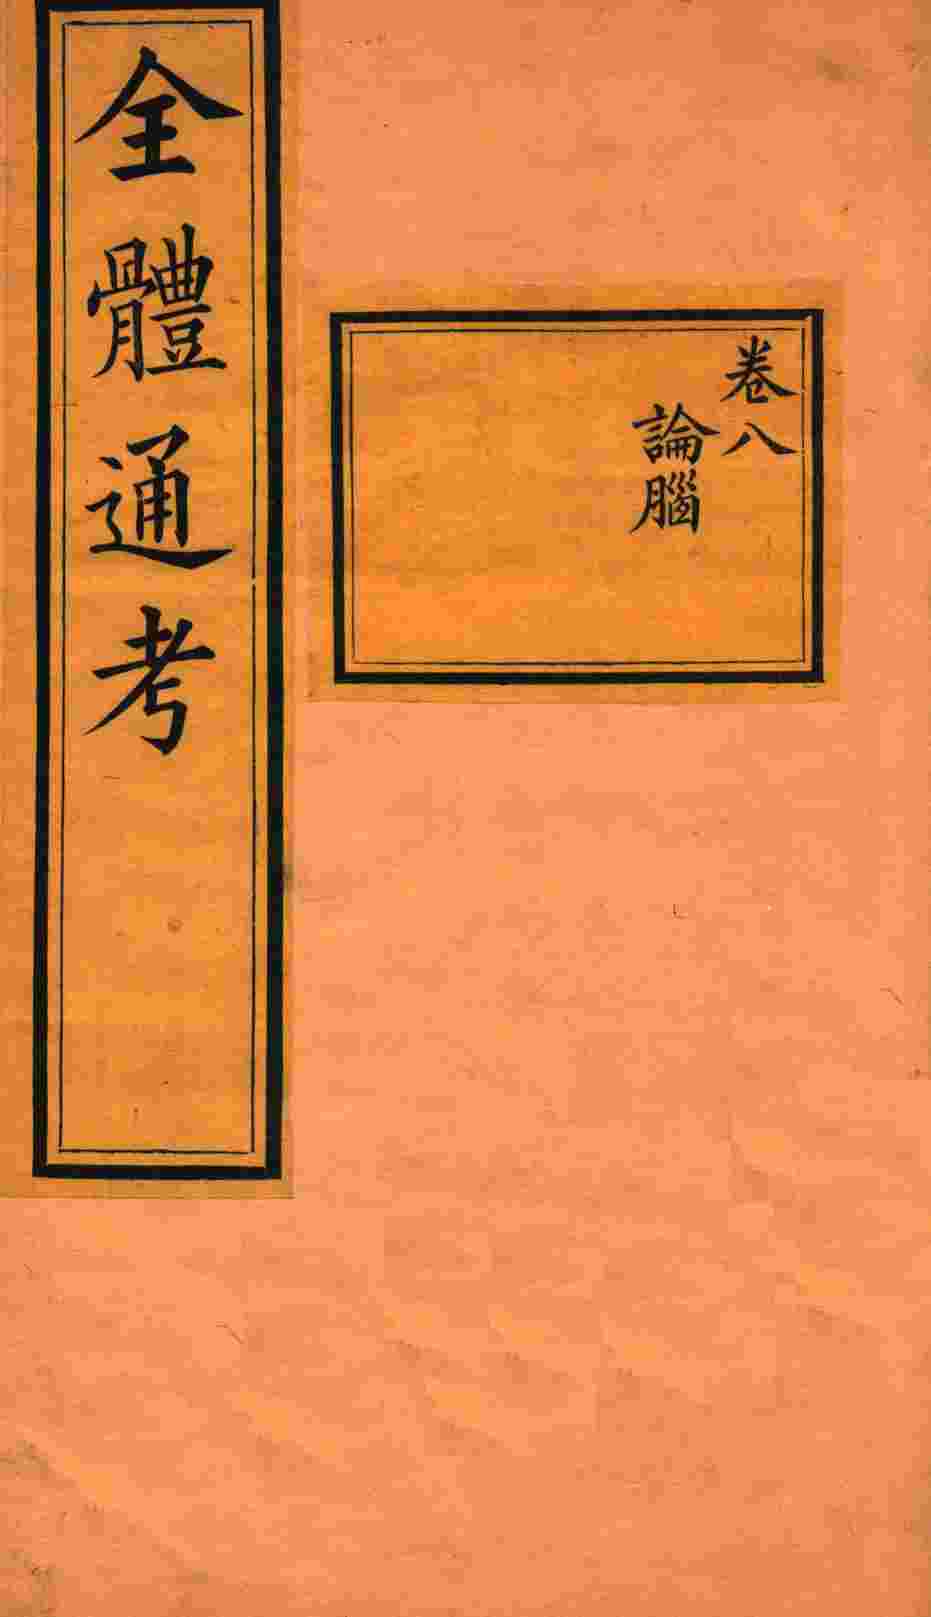 卷八
論腦
全體通考